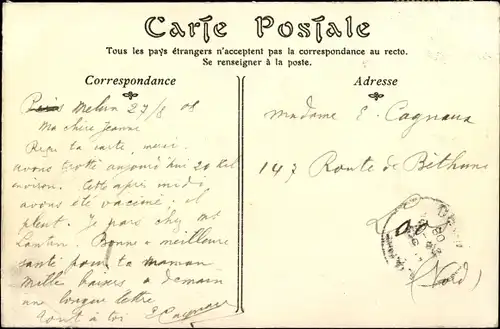 Carte Postale
Tous les pays étrangers n'acceptent pas la correspondance au recto.
Se renseigner à la poste.
Correspondance
Adresse
Melun 27/8 08
Ma chère Jeanne
Reçu ta carte, merci.
avons trotté aujourd'hui 20 kil
environ. Cette après midi
avons été vacciné, il
pleut. Je pars chez
Bonne & meilleure
santé pour ta maman
Mille baisers à demain
une longue lettre
Tout à toi E Cagnaux
Madame E. Cagnaux
147 Route de Béthune
(Nord)